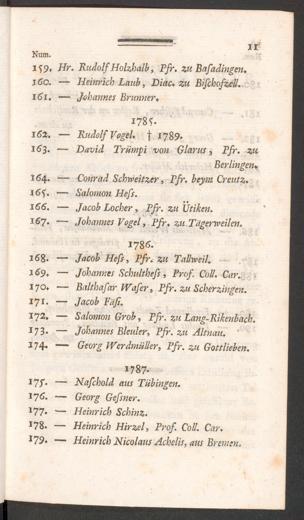 11
Num.
159. Hr. Rudolf Holzhalb, Pfr. zu Basadingen.
160. — Heinrich Laub, Diac. zu Bischofzell.
161. — Johannes Brunner.
1785.
162. — Rudolf Vogel. † 1789.
163. — David Trümpi von Glarus, Pfr. zu
Berlingen.
164. — Conrad Schweitzer, Pfr. beym Creutz.
165. — Salomon Hess.
166. — Jacob Locher, Pfr. zu Ütiken.
167. — Johannes Vogel, Pfr. zu Tagerweilen.
1786.
168. — Jacob Hess, Pfr. zu Tallweil.
169. — Johannes Schulthess, Prof. Coll. Car.
170. — Balthasar Waser, Pfr. zu Scherzingen.
171. — Jacob Fäsi.
172. — Salomon Grob, Pfr. zu Lang-Rikenbach.
173. — Johannes Bleuler, Pfr. zu Altnau.
174. — Georg Werdmüller, Pfr. zu Gottlieben.
1787.
175. — Naschold aus Tübingen.
176. — Georg Gessner.
177. — Heinrich Schinz.
178. — Heinrich Hirzel, Prof. Coll. Car.
179. — Heinrich Nicolaus Achelis, aus Bremen.